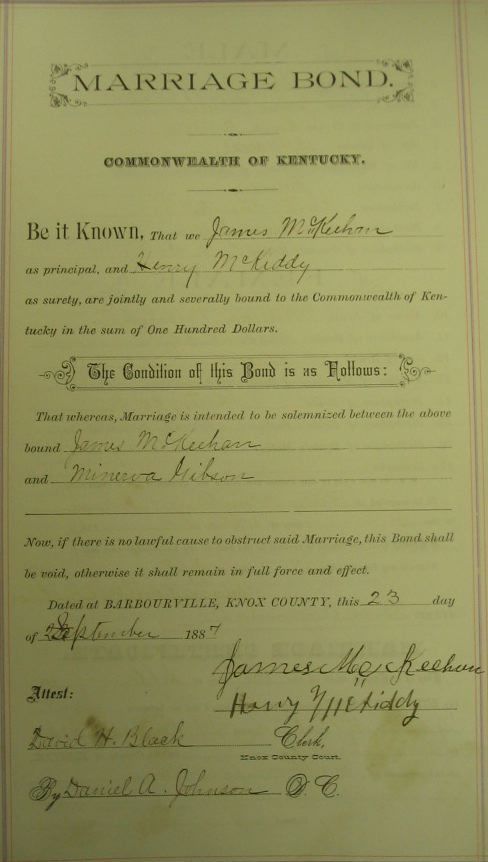 MARRIAGE BOND.
COMMONWEALTH OF KENTUCKY.
Be it Known, That we James McKeehan
as principal, and Henry McKiddy
as surety, are jointly and severally bound to the Commonwealth of Ken-
tucky in the sum of One Hundred Dollars.
The Condition of this Bond is as Follows:
That whereas, Marriage is intended to be solemnized between the above
bound James McKeehan
and Minerva Gibson
Now, if there is no lawful cause to obstruct said Marriage, this Bond shall
be void, otherwise it shall remain in full force and effect.
Dated at BARBOURVILLE, KNOX COUNTY, this 23 day
of September 1887
James McKeehan
Attest: Henry McKiddy
David H. Black Clerk,
Knox County Court.
By Daniel A. Johnson D. C.